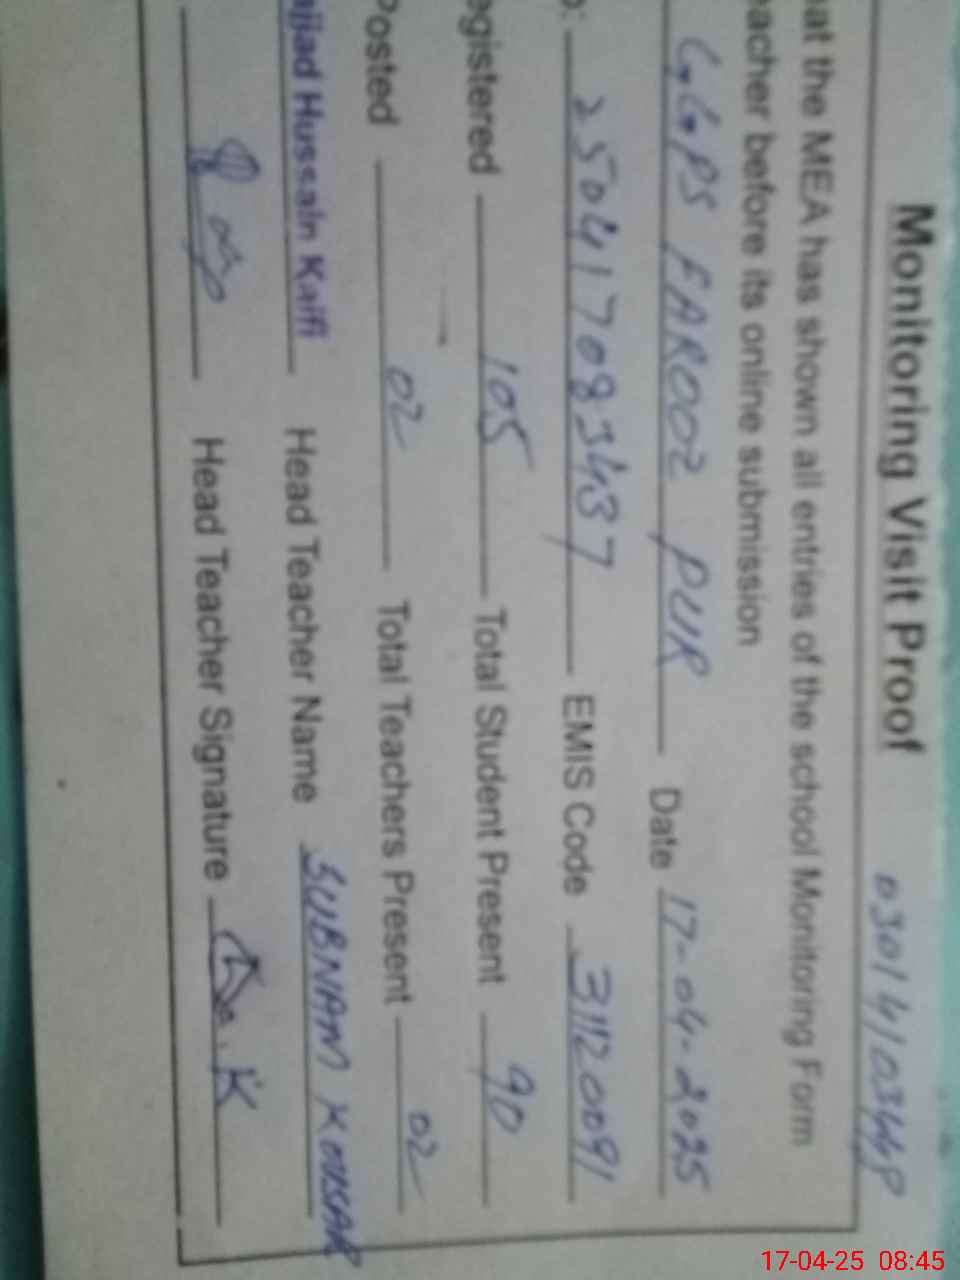 Monitoring Visit Proof 03014103448
at the MEA has shown all entries of the school Monitoring Form
eacher before its online submission
GGPS FAROOZ PUR Date 17-04-2025
250417083437 EMIS Code 31120091
egistered 105 Total Student Present 90
Posted 02 Total Teachers Present 02
ajjad Hussain Kaiffi Head Teacher Name SUBNAM KOUSAR
Head Teacher Signature
17-04-25 08:45